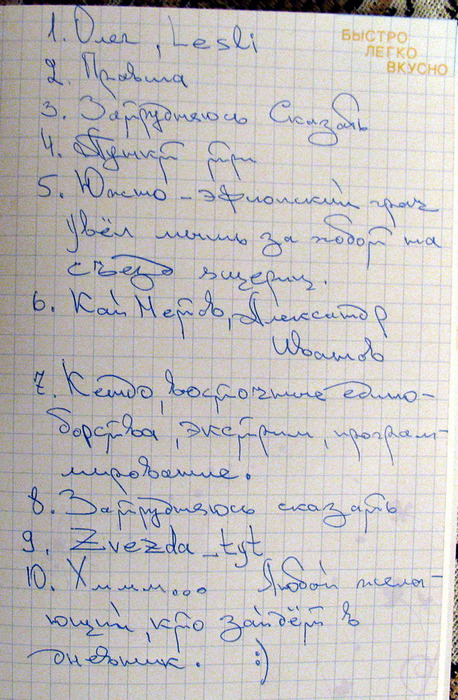 1. Олег, Lesli
БЫСТРО
ЛЕГКО
ВКУСНО
2. Правша
3. Затрудняюсь сказать
4. Пункт три
5. Южно-эфиопский грач
увёл мышь за хобот на
съезд ящериц.
6. Кай Метов, Александр
Иванов
7. Кендо, восточные едино-
борства, экстрим, програм-
мирование.
8. Затрудняюсь сказать
9. Zvezda_tyt
10. Хммм... Любой жела-
ющий, кто зайдёт в
дневник. :)